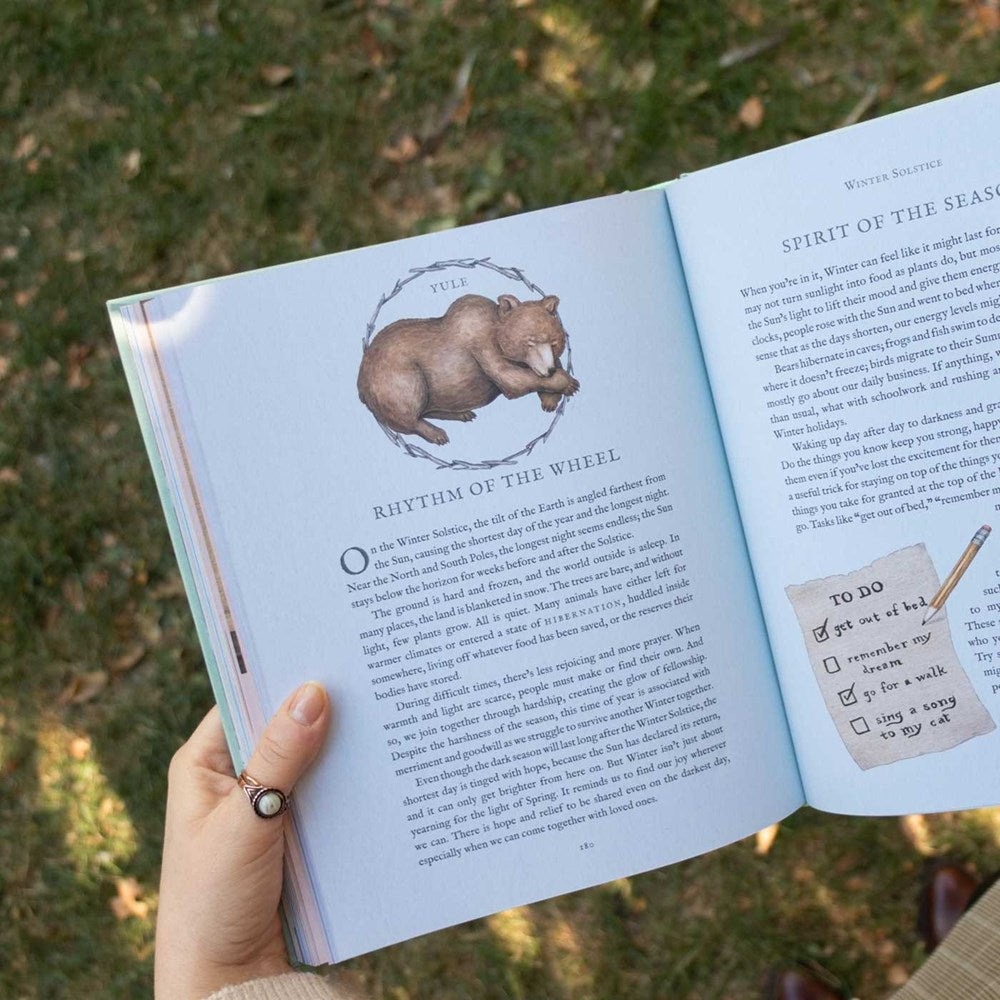 YULE
RHYTHM OF THE WHEEL
On the Winter Solstice, the tilt of the Earth is angled farthest from
the Sun, causing the shortest day of the year and the longest night.
Near the North and South Poles, the longest night seems endless; the Sun
stays below the horizon for weeks before and after the Solstice.
The ground is hard and frozen, and the world outside is asleep. In
many places, the land is blanketed in snow. The trees are bare, and without
light, few plants grow. All is quiet. Many animals have either left for
warmer climates or entered a state of HIBERNATION, huddled inside
somewhere, living off whatever food has been saved, or the reserves their
bodies have stored.
During difficult times, there's less rejoicing and more prayer. When
warmth and light are scarce, people must make or find their own. And
so, we join together through hardship, creating the glow of fellowship.
Despite the harshness of the season, this time of year is associated with
merriment and goodwill as we struggle to survive another Winter together.
Even though the dark season will last long after the Winter Solstice, the
shortest day is tinged with hope, because the Sun has declared its return,
and it can only get brighter from here on. But Winter isn't just about
yearning for the light of Spring. It reminds us to find our joy wherever
we can. There is hope and relief to be shared even on the darkest day,
especially when we can come together with loved ones.
180
WINTER SOLSTICE
SPIRIT OF THE SEASO
When you're in it, Winter can feel like it might last for
may not turn sunlight into food as plants do, but mos
the Sun's light to lift their mood and give them energ
clocks, people rose with the Sun and went to bed whe
sense that as the days shorten, our energy levels mig
Bears hibernate in caves; frogs and fish swim to de
where it doesn't freeze; birds migrate to their Summ
mostly go about our daily business. If anything, w
than usual, what with schoolwork and rushing a
Winter holidays.
Waking up day after day to darkness and gra
Do the things you know keep you strong, happ
them even if you've lost the excitement for the
a useful trick for staying on top of the things y
things you take for granted at the top of the
go. Tasks like "get out of bed," "remember m
TO DO
get out of bed
remember my
dream
go for a walk
sing a song
to my cat
suc
to my
These
who yo
Try s
mig